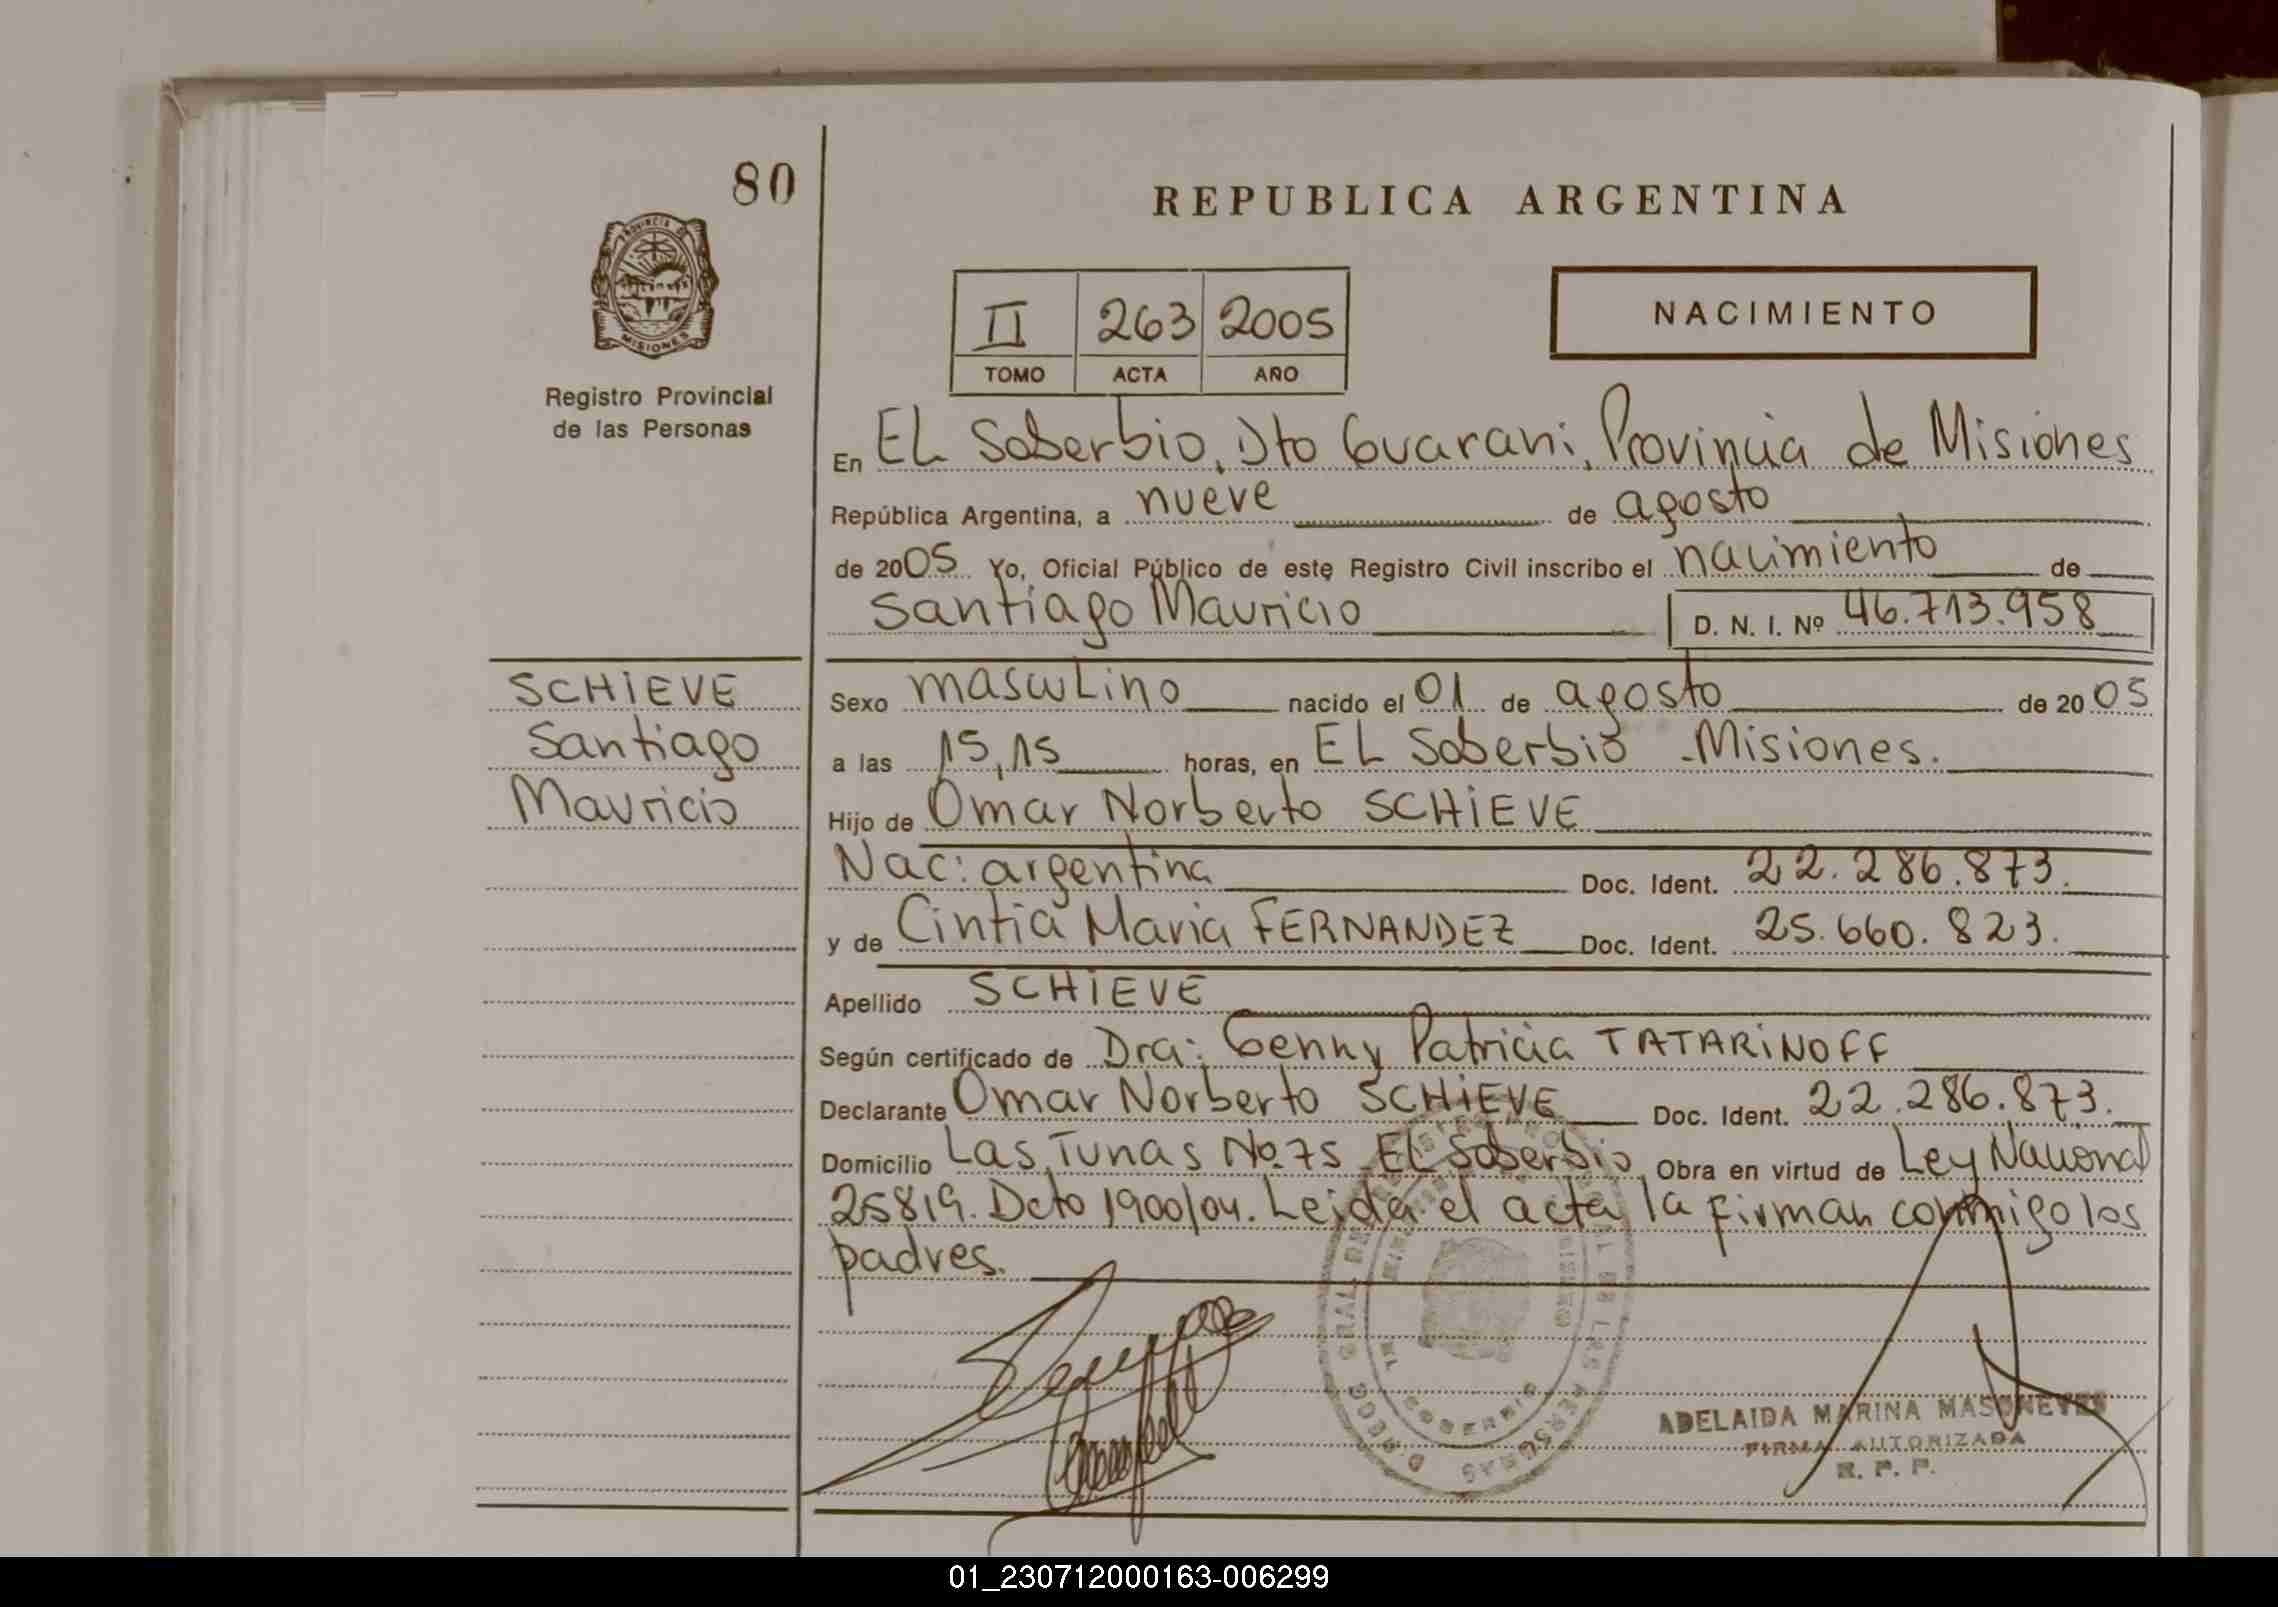 80
REPUBLICA ARGENTINA
PROVINCIA DE
MISIONES
Registro Provincial
de las Personas
II 263 2005
TOMO ACTA AÑO
NACIMIENTO
En EL Soberbio, Dto Guarani, Provincia de Misiones
República Argentina, a nueve de agosto
de 2005 Yo, Oficial Público de este Registro Civil inscribo el nacimiento de
Santiago Mauricio D. N. I. Nº 46.713.958
SCHIEVE
Santiago
Mauricio
Sexo masculino nacido el 01 de agosto de 2005
a las 15,15 horas, en EL Soberbio - Misiones.
Hijo de Omar Norberto SCHIEVE
Nac: argentina Doc. Ident. 22.286.873.
y de Cintia Maria FERNANDEZ Doc. Ident. 25.660.823.
Apellido SCHIEVE
Según certificado de Dra: Genny Patricia TATARINOFF
Declarante Omar Norberto SCHIEVE Doc. Ident. 22.286.873.
Domicilio Las Tunas No. 75 - EL Soberbio Obra en virtud de Ley Nacional
25819. Dcto 1900/04. Leida el acta la firman conmigo los
padres.
ADELAIDA MARINA MASONEVES
FIRMA AUTORIZADA
R. P. P.
01_230712000163-006299